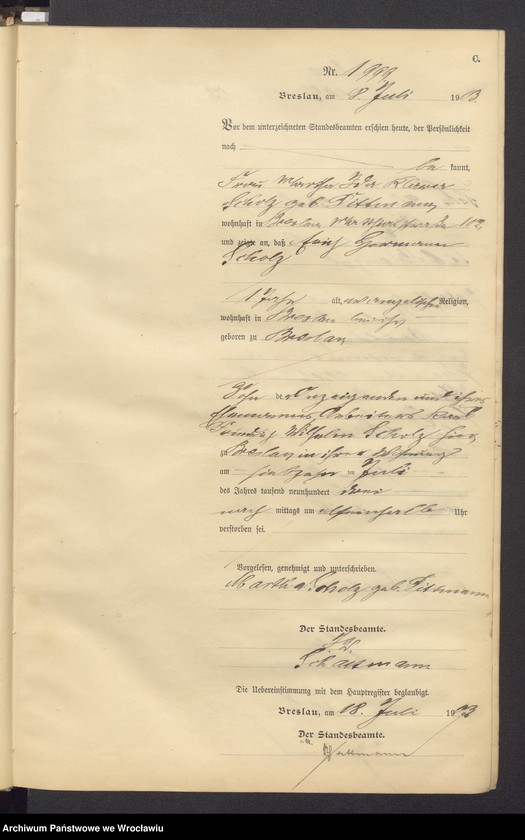 C.
Nr. 1999
Breslau, am 8. Juli 1903
Vor dem unterzeichneten Standesbeamten erschien heute, der Persönlichkeit
nach be kannt,
Frau Martha Ida Klara
Scholz geb. Dittmann,
wohnhaft in Breslau
und zeigte an, daß Erich Hermann
Scholz
1 Jahr alt, evangelischer Religion,
wohnhaft in Breslau bei ihr
geboren zu Breslau
Sohn der Anzeigenden und ihres
Ehemannes, Arbeiters Karl
Wilhelm Scholz hier
zu Breslau in ihrer Wohnung
am Juli
des Jahres tausend neunhundert drei
nach mittags um Uhr
verstorben sei.
Vorgelesen, genehmigt und unterschrieben.
Martha Scholz geb. Dittmann
Der Standesbeamte.
Die Uebereinstimmung mit dem Hauptregister beglaubigt.
Breslau, am 18. Juli 1903
Der Standesbeamte.
Archiwum Państwowe we Wrocławiu